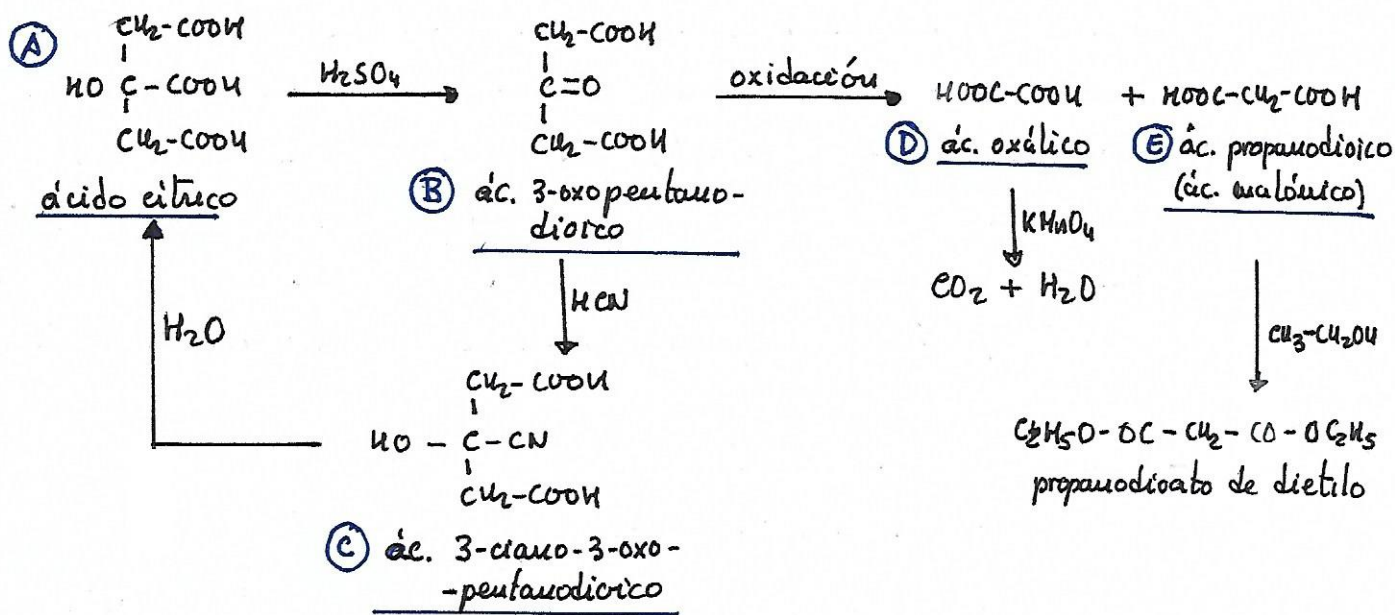 A
CH₂-COOH
HO C-COOH
CH₂-COOH
ácido cítrico
H₂SO₄
CH₂-COOH
C=O
CH₂-COOH
B ác. 3-oxopentano-
dioico
oxidacción
HOOC-COOH + HOOC-CH₂-COOH
D ác. oxálico
E ác. propanodioico
(ác. malónico)
KMnO₄
CO₂ + H₂O
CH₃-CH₂OH
C₂H₅O-OC-CH₂-CO-OC₂H₅
propanodioato de dietilo
HCN
CH₂-COOH
HO-C-CN
CH₂-COOH
C ác. 3-ciano-3-oxo-
-pentanodioico
H₂O